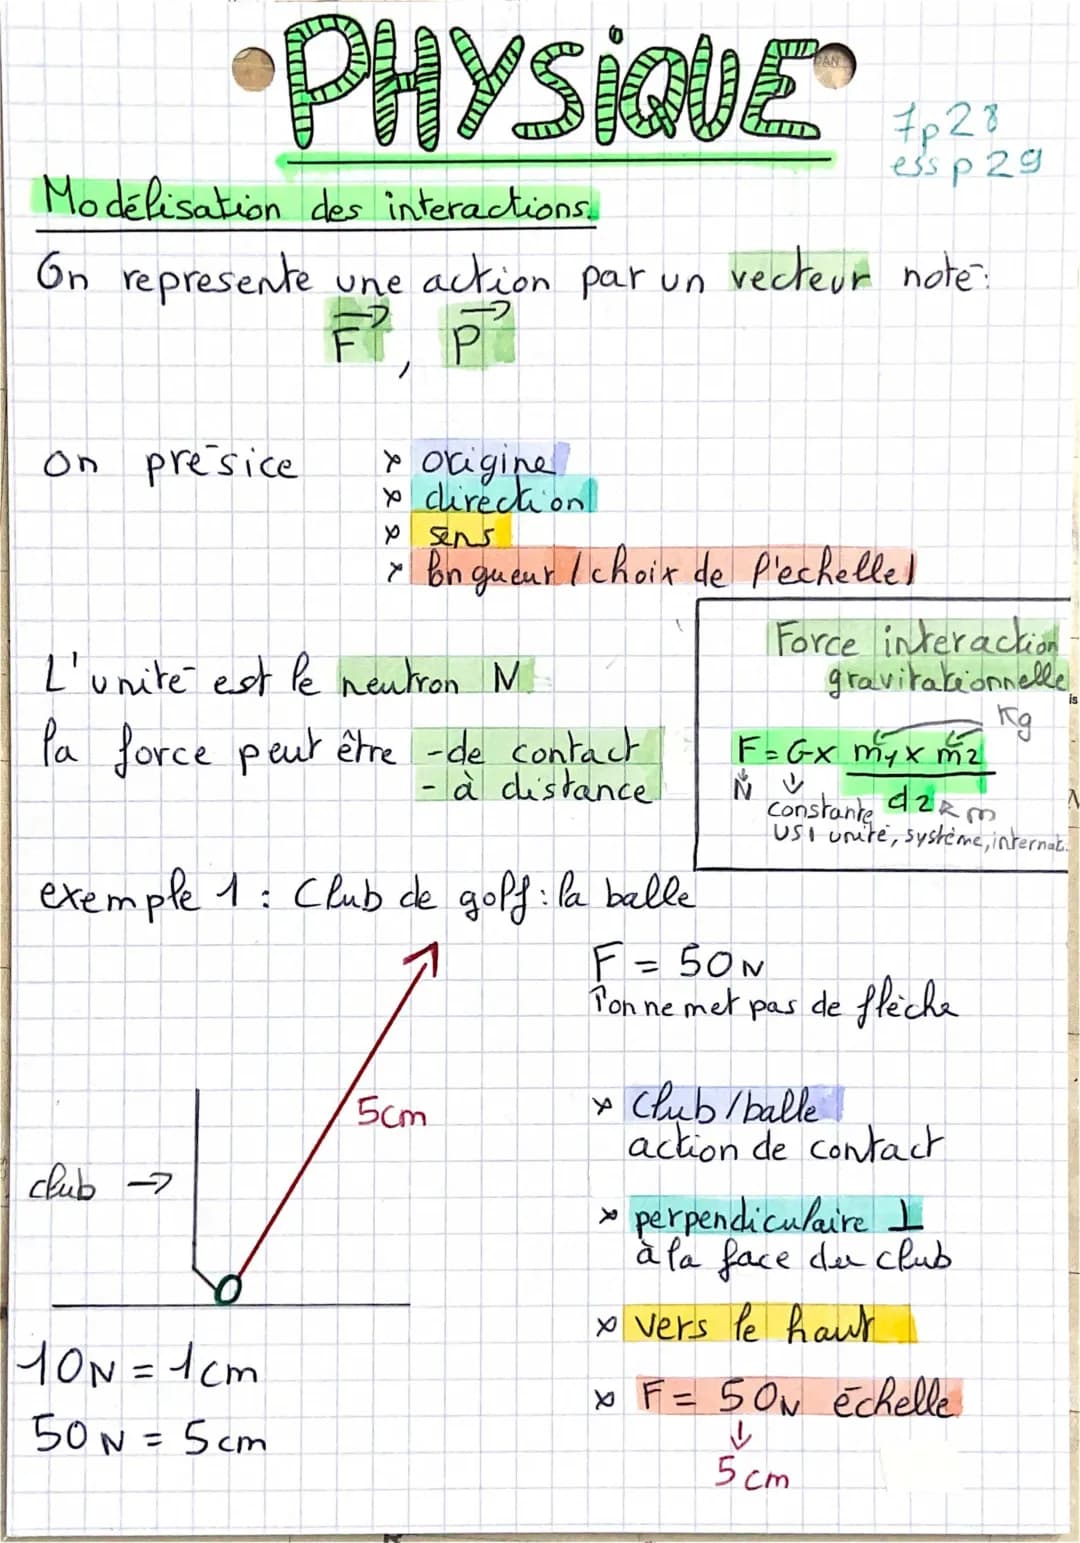 PHYSiQUE
7p28
ess p 29
Modélisation des interactions.
On represente une action par un vecteur noté:
F→, P→
on présice × origine
× direction
× sens
× longueur (choix de l'echelle)
Force interaction
gravitationnelle
L'unité est le neutron N
Kg
la force peut être - de contact
- à distance
F = G x m1 x m2
d2 m
N
constante
USI unité, système, internat.
exemple 1 : Club de golf : la balle
F = 50N
↑ on ne met pas de flèche
5cm
× club/balle
action de contact
club →
× perpendiculaire ⊥
à la face du club
× vers le haut
10N = 1cm
× F = 50N échelle
50N = 5cm
↓
5cm